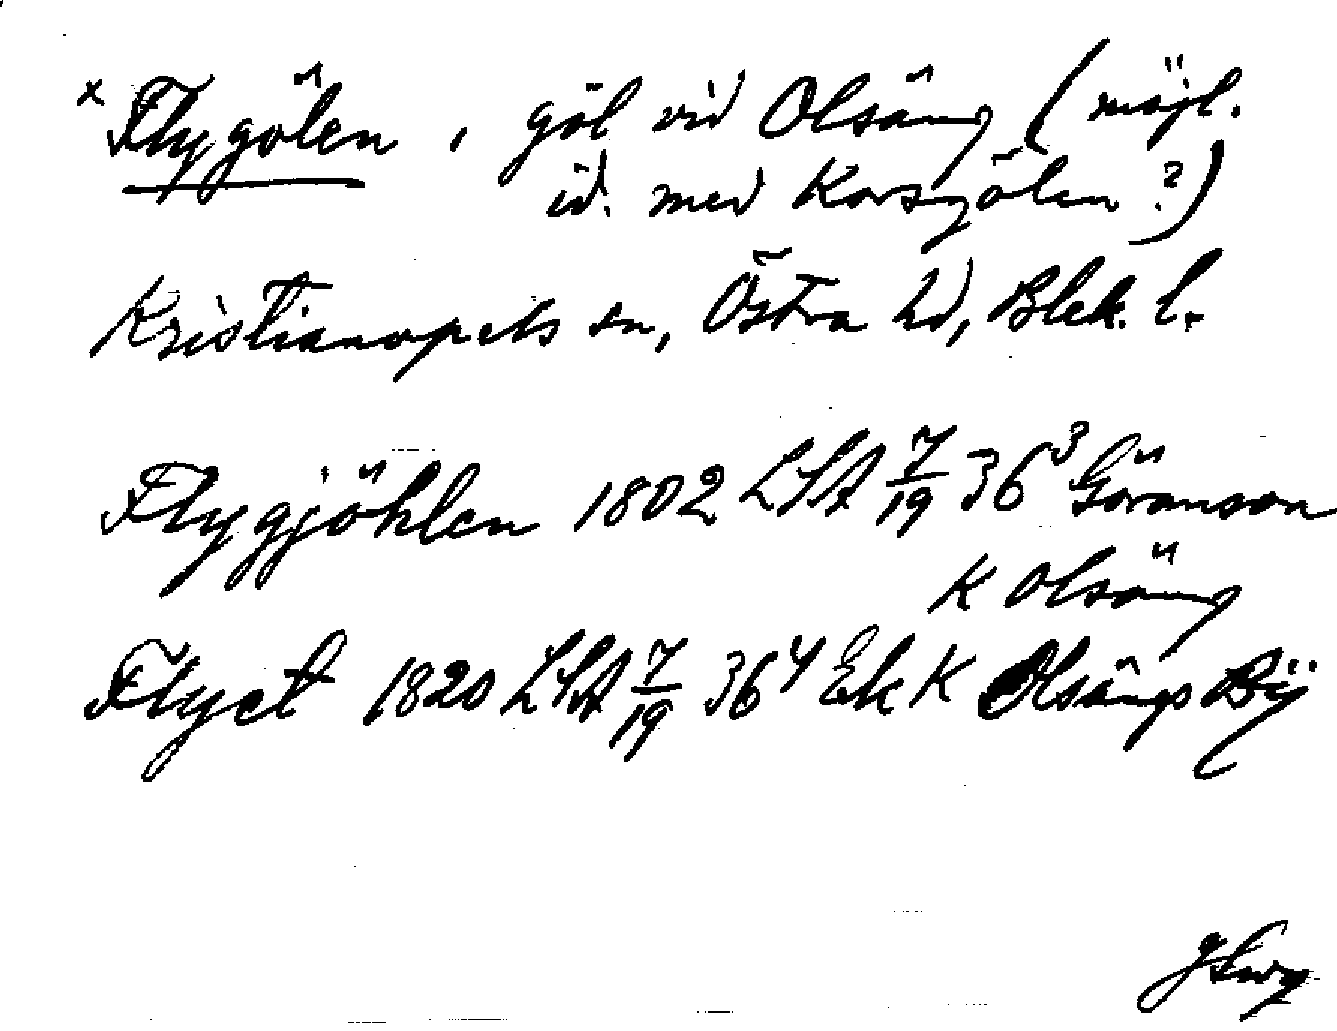 x Flygölen, göl vid Olsäng (möjl.
id. med Korsgölen?)
Kristianopels sn, Östra hd, Blek. l.
Flygjöhlen 1802 LSA 7/19 36³ Göranson
K Olsäng
Flyet 1820 LSA 7/19 36⁴ Ek K Olsängs Bÿ